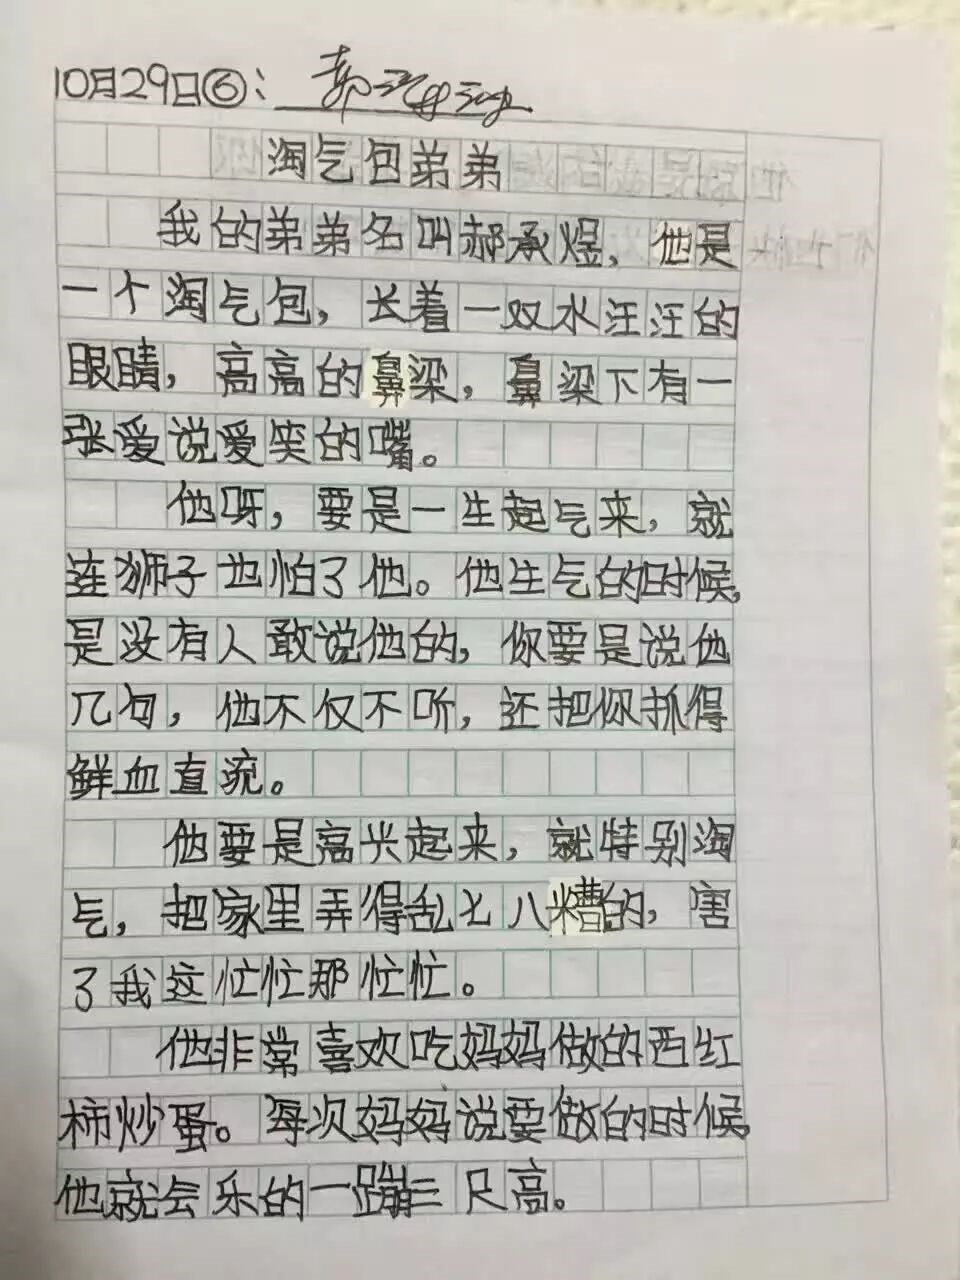 10月29日⑥:
淘气包弟弟
我的弟弟名叫郝承煜,他是
一个淘气包,长着一双水汪汪的
眼睛,高高的鼻梁,鼻梁下有一
张爱说爱笑的嘴。
他呀,要是一生起气来,就
连狮子也怕了他。他生气的时候,
是没有人敢说他的,你要是说他
几句,他不仅不听,还把你抓得
鲜血直流。
他要是高兴起来,就特别淘
气,把家里弄得乱七八糟的,害
了我这忙忙那忙忙。
他非常喜欢吃妈妈做的西红
柿炒蛋。每次妈妈说要做的时候,
他就会乐的一蹦三尺高。